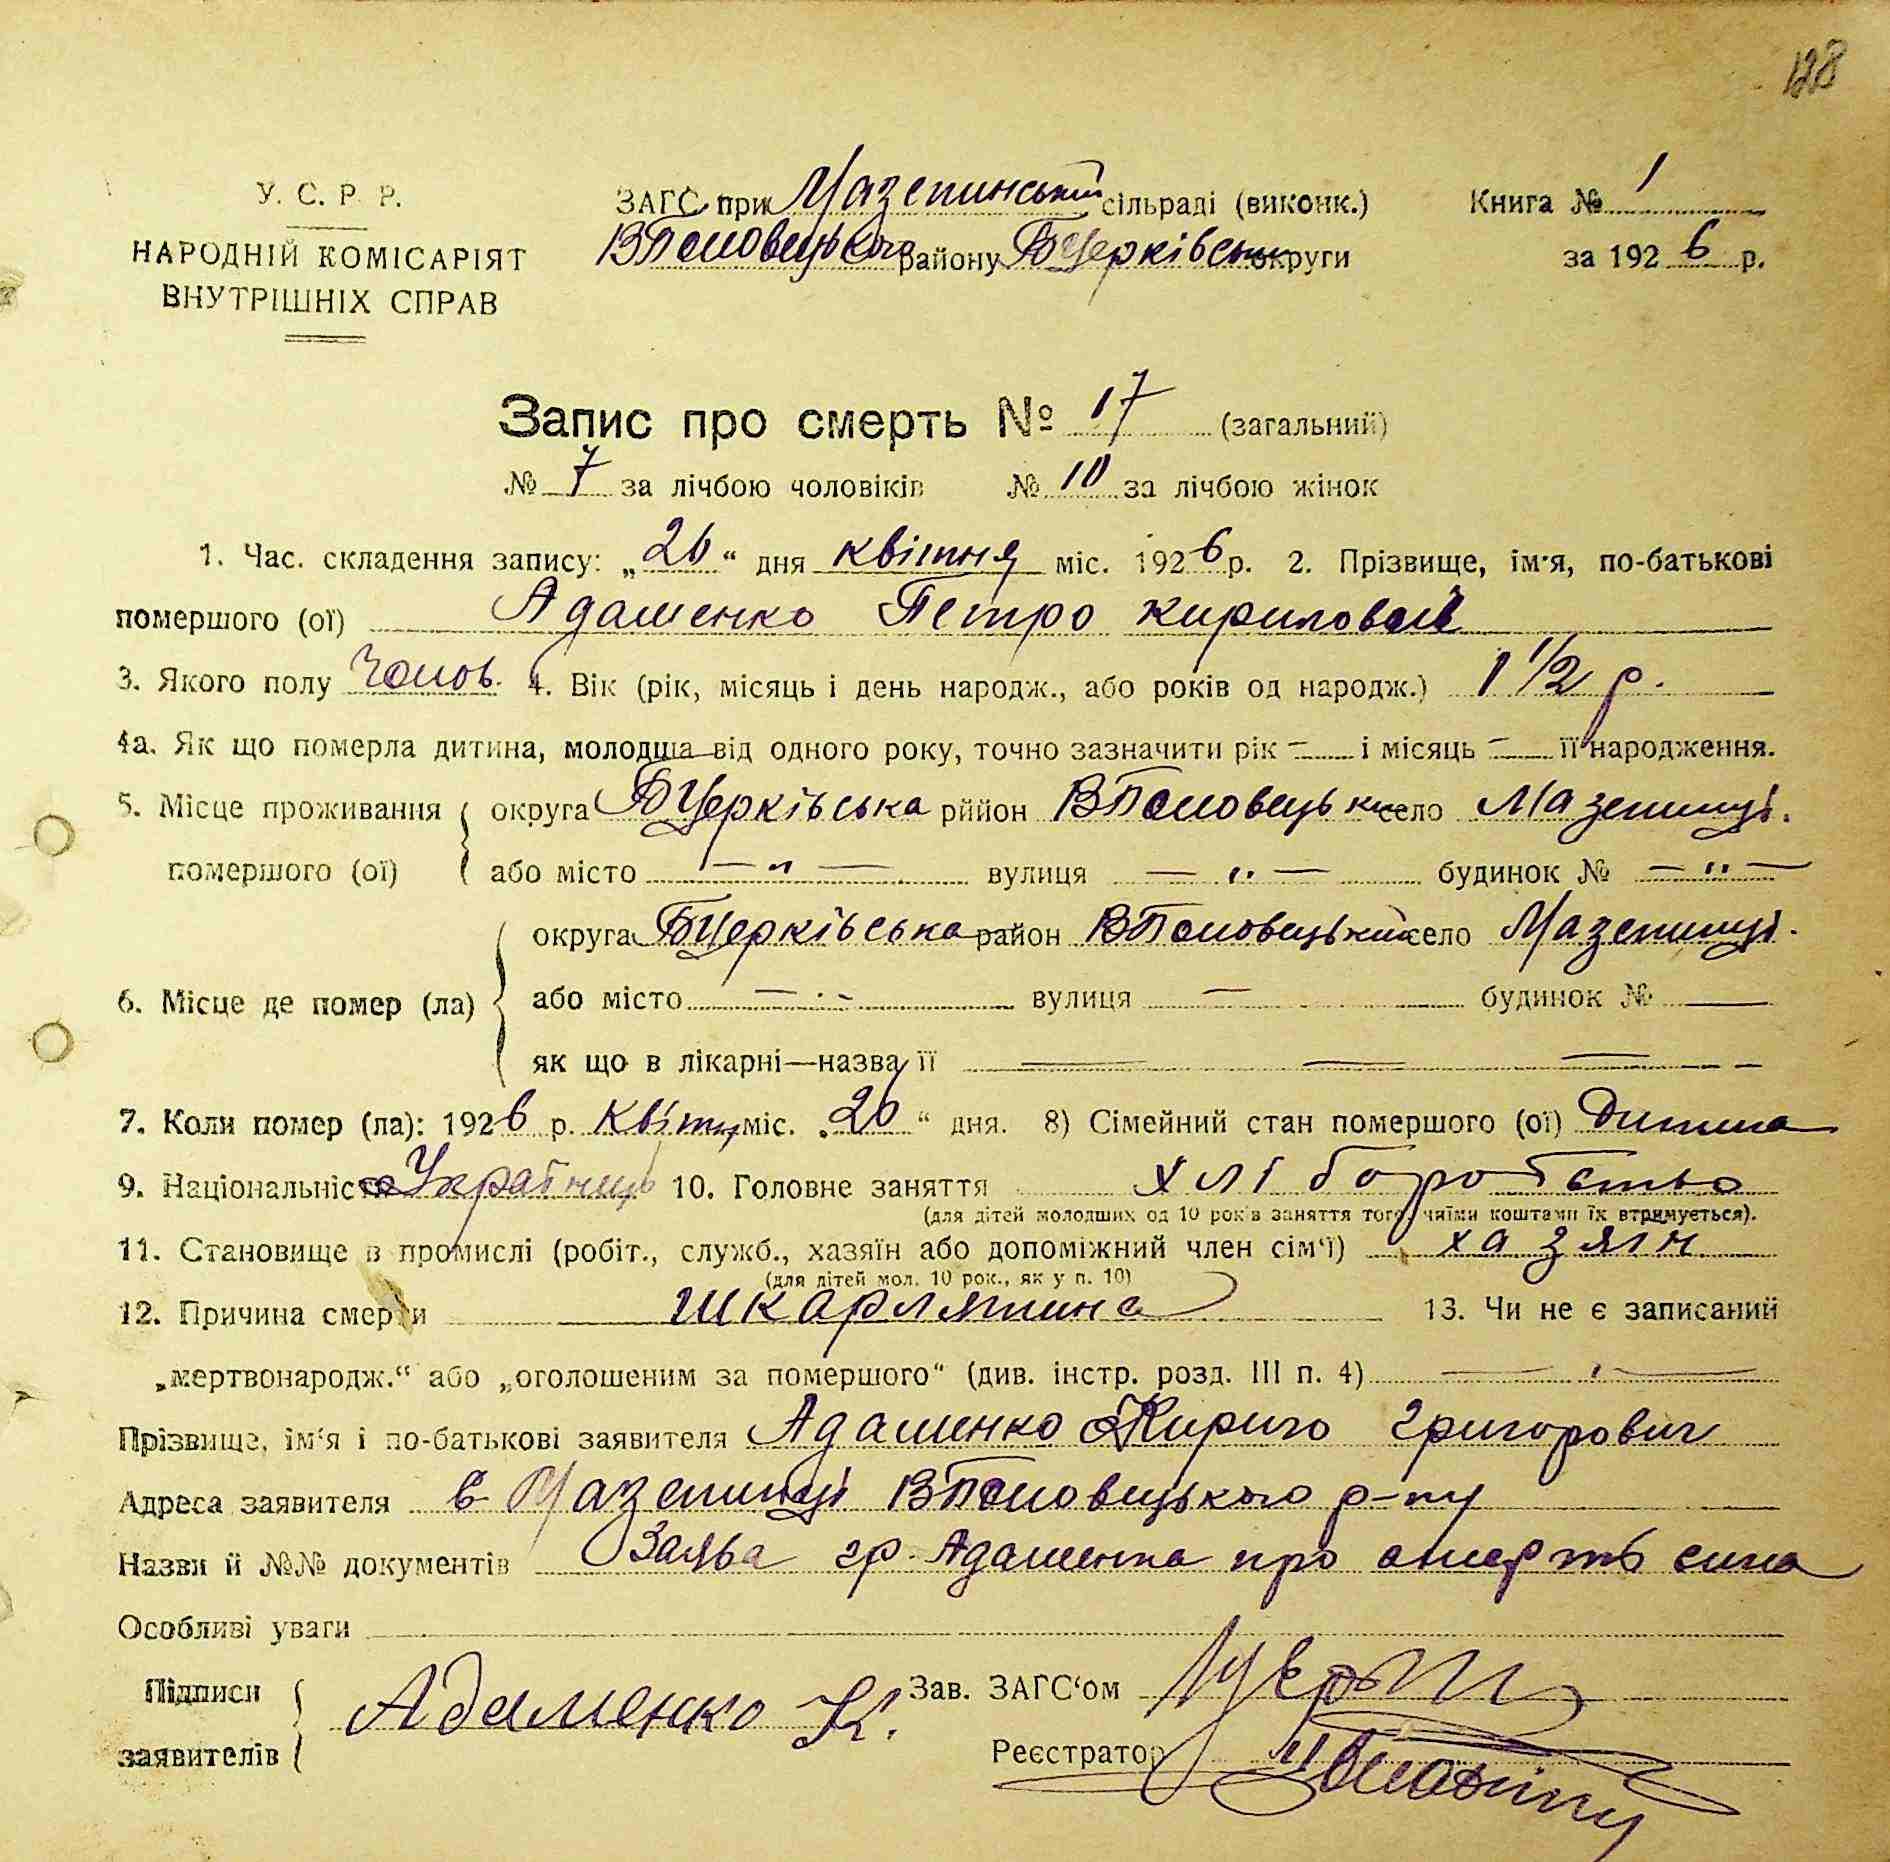 128
У. С. Р. Р.
НАРОДНІЙ КОМІСАРІЯТ
ВНУТРІШНІХ СПРАВ
ЗАГС при Мазепинській сільраді (виконк.)
ВПоловецького району БЦерківськ округи
Книга № 1
за 1926 р.
Запис про смерть № 17 (загальний)
№ 7 за лічбою чоловіків № 10 за лічбою жінок
1. Час. складення запису: „26“ дня квітня міс. 1926 р. 2. Прізвище, ім'я, по-батькові
помершого (ої) Адаменко Петро Кирилович
3. Якого полу Чолов. 4. Вік (рік, місяць і день народж., або років од народж.) 1 1/2 р.
4а. Як що померла дитина, молодша від одного року, точно зазначити рік – і місяць – її народження.
5. Місце проживання помершого (ої) округа БЦерківська рййон ВПоловецьки село Мазепинці.
або місто — „ — вулиця — „ — будинок № — „ —
6. Місце де помер (ла) округа БЦерківська район ВПоловецький село Мазепинці.
або місто — „ — вулиця — будинок № —
як що в лікарні—назва її — — —
7. Коли помер (ла): 1926 р. Квітн міс. „26“ дня. 8) Сімейний стан помершого (ої) Дитина
9. Національність Українець 10. Головне заняття хліборобство
(для дітей молодших од 10 років заняття того, чиїми коштами їх втримується).
11. Становище в промислі (робіт., служб., хазяїн або допоміжний член сім'ї) хазяїн
(для дітей мол. 10 рок., як у п. 10)
12. Причина смерти шкарлятина 13. Чи не є записаний
„мертвонародж.“ або „оголошеним за помершого“ (див. інстр. розд. III п. 4) — „ —
Прізвище, ім'я і по-батькові заявителя Адаменко Кирило Григорович
Адреса заявителя с Мазепинці ВПоловецького р-ну
Назви й №№ документів Заява гр. Адаменка про смерть сина
Особливі уваги
Підписи заявителів Адаменко К.
Зав. ЗАГС'ом
Реєстратор